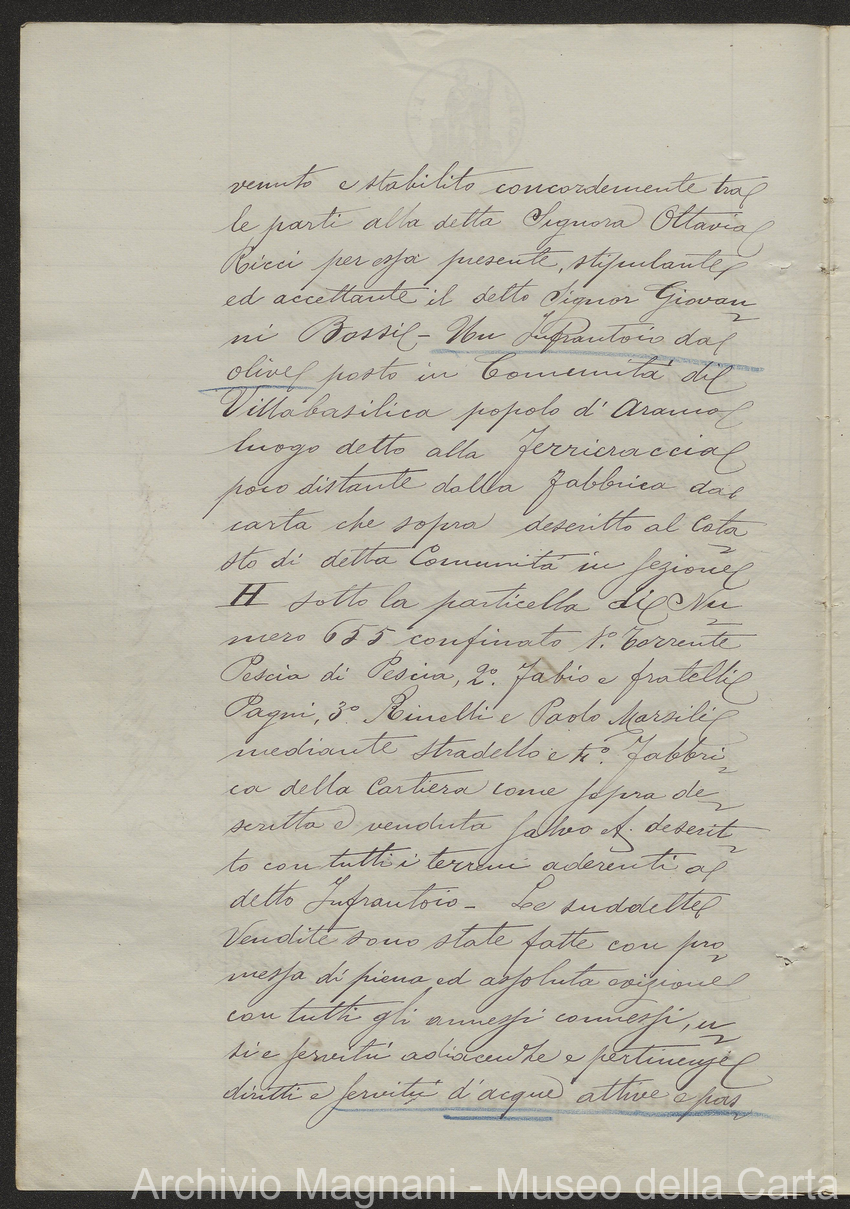 venuto e stabilito concordemente tra
le parti alla detta Signora Ottavia
Ricci per essa presente, stipulante
ed accettante il detto Signor Giovan
ni Bossi - Un Infrantoio da
olive posto in Comunità di
Villabasilica popolo d'Aramo
luogo detto alla Ferrieraccia
poco distante dalla Fabbrica da
carta che sopra descritto al Cata
sto di detta Comunità in Sezione
H sotto la particella di Nu
mero 655 confinato 1º. Torrente
Pescia di Pescia, 2º. Fabio e fratelli
Pagni, 3º Rinelli e Paolo Marsili
mediante stradello e 4º. Fabbri
ca della Cartiera come sopra de
scritta e venduta salvo &. descrit
to con tutti i terreni aderenti al
detto Infrantoio - Le suddette
Vendite sono state fatte con pro
messa di piena ed assoluta evizione
con tutti gli annessi connessi, u
si e servitù adiacenze e pertinenze
diritti e servitù d'acque attive e pas
Archivio Magnani - Museo della Carta